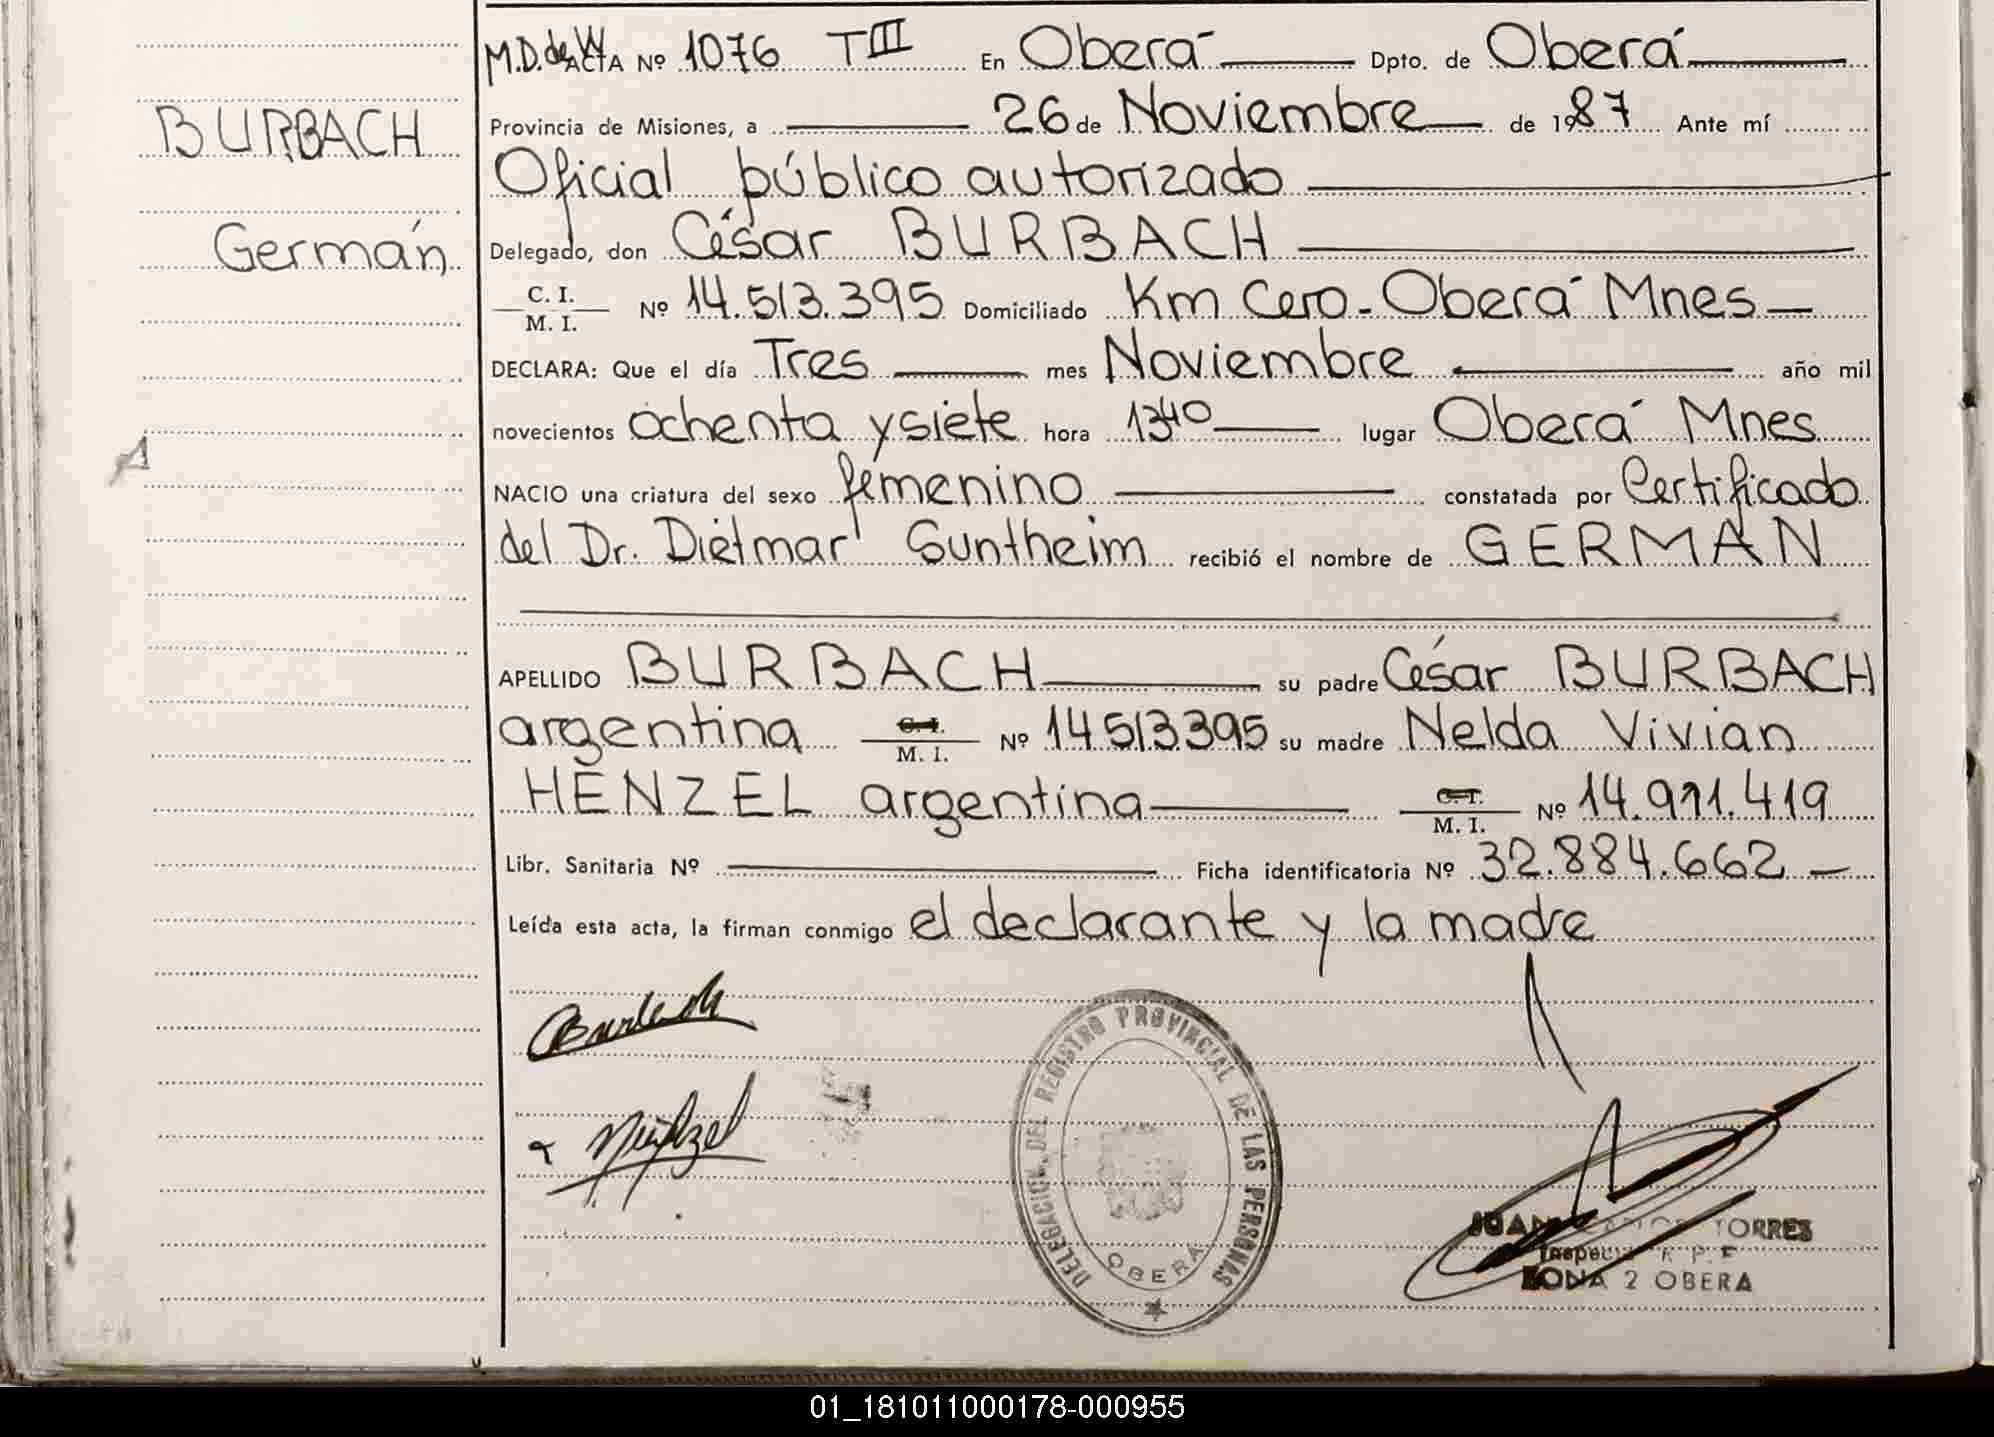 BURBACH
Germán
M.D. de W ACTA Nº 1076 TIII En Oberá Dpto. de Oberá
Provincia de Misiones, a 26 de Noviembre de 1987 Ante mí
Oficial público autorizado
Delegado, don César BURBACH
C. I.
M. I. Nº 14.513.395 Domiciliado Km Cero - Oberá Mnes
DECLARA: Que el día Tres mes Noviembre año mil
novecientos ochenta y siete hora 1340 lugar Oberá Mnes
NACIO una criatura del sexo femenino constatada por Certificado
del Dr. Dietmar Suntheim recibió el nombre de GERMAN
APELLIDO BURBACH su padre César BURBACH
argentina C. I. M. I. Nº 14.513.395 su madre Nelda Vivian
HENZEL argentina C. I. M. I. Nº 14.971.419
Libr. Sanitaria Nº Ficha identificatoria Nº 32.884.662
Leída esta acta, la firman conmigo el declarante y la madre
DELEGACION DEL REGISTRO PROVINCIAL DE LAS PERSONAS
OBERA
JUAN CARLOS TORRES
R P P
ZONA 2 OBERA
01_181011000178-000955